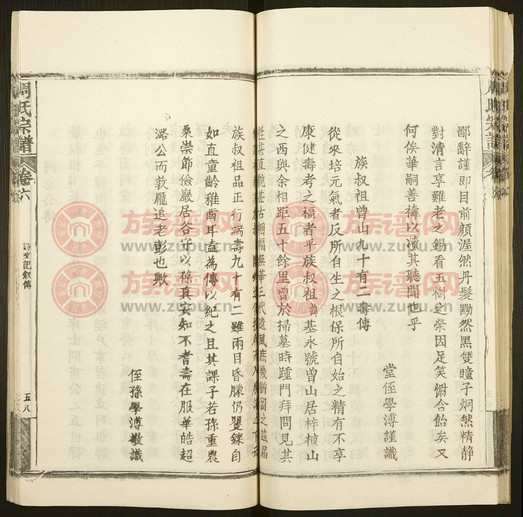 鄙辭謹即目前顏渥然丹髮黝然黑雙瞳子炯然精靜
對清言享難老之錫看五樹之榮因足笑餳含飴矣又
何俟華嗣善禱以瀆其聽聞也乎
堂侄學溥謹識
族叔祖曾山九十有二壽傳
從來培元氣者反所自生之根保所自始之精有不享
康健壽考之福者乎族叔祖曾基永號曾山居梓橦山
之西與余相距五十餘里曾於掃墓時踵門拜問見其
族叔祖品正行端壽九十有二雖兩目昏朦仍矍鑠自
如直童齡稚齒耳盍為傳以紀之且其課子若孫重農
桑崇節儉嚴居各守以係真安知不耆壽在服華皓超
潞公而敦龐追老彭也歟
侄孫學溥敬識
周氏宗譜
卷六
詩文記叙傳
五八
周氏宗譜
族譜网
zupu.cn